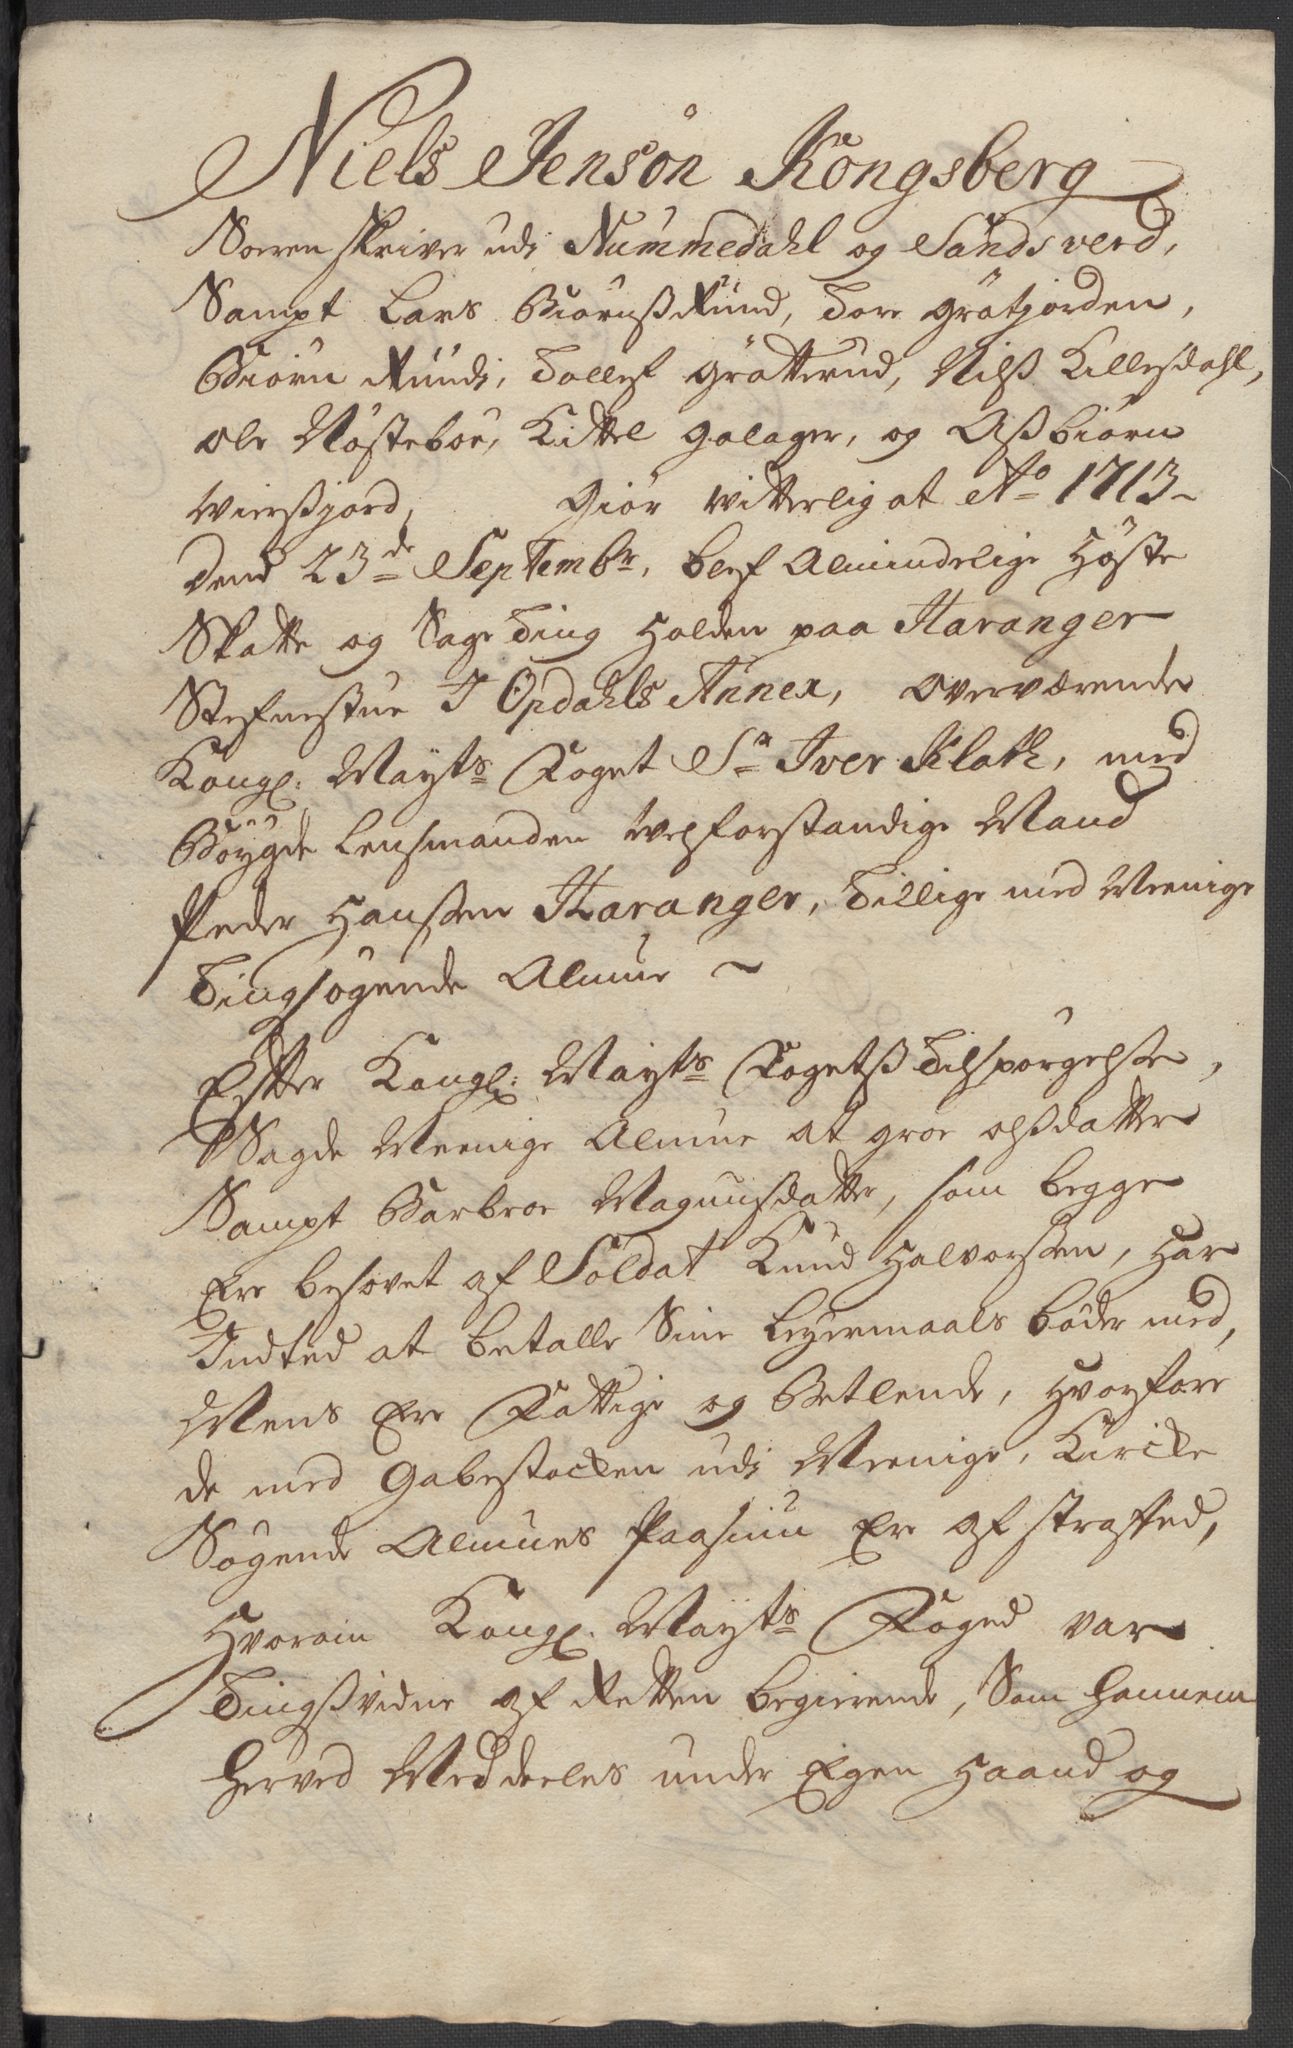 Niels Jensøn Kongsberg
Soren skriver udi Nummedahl og Sandsverd,
Sampt Lars Biørnß Rund, Tore Grøtjorden,
Biørn Rundi, Tollef Grøtterud, Nilß Killesdahl,
ole Nøsteboe, Kittel Golager, og Aßbiørn
Wierßjord, Giør witterlig at Ao 1713
dend 23de Septembr, blef Almindelige Høste
Skatte og Sage Ting Holden paa Haranger
Stefnestue I Opdahls Annex, overværende
Kongl: Mayts Foget Sr Iver Kloth, med
Bøygde Lensmanden welforstandige Mand
Peder Hanßen Haranger, Tillige med Meenige
Tingsøgende Almue ~
Efter Kongl: Mayts Fogetß Tilspørgelße,
Sagde Meenige Almue at Groe olßdatter
Sampt Barbroe Magnusdatter, som begge
Ere besovet af Soldat Knud Halvorßen, Har
Indted at betalle Sine Leyermaals bøder med,
Mens Ere Fattige og Betlende, Hvorfore
de med Gabestocken udi Meenige, Kircke
Søgende Almues Paasiun Ere afstraffed,
Hvorom Kongl: Mayts Foged var
Tingßvidne af Retten begierende, Som Hannem
Herved Meddeeles under Egen Haand og